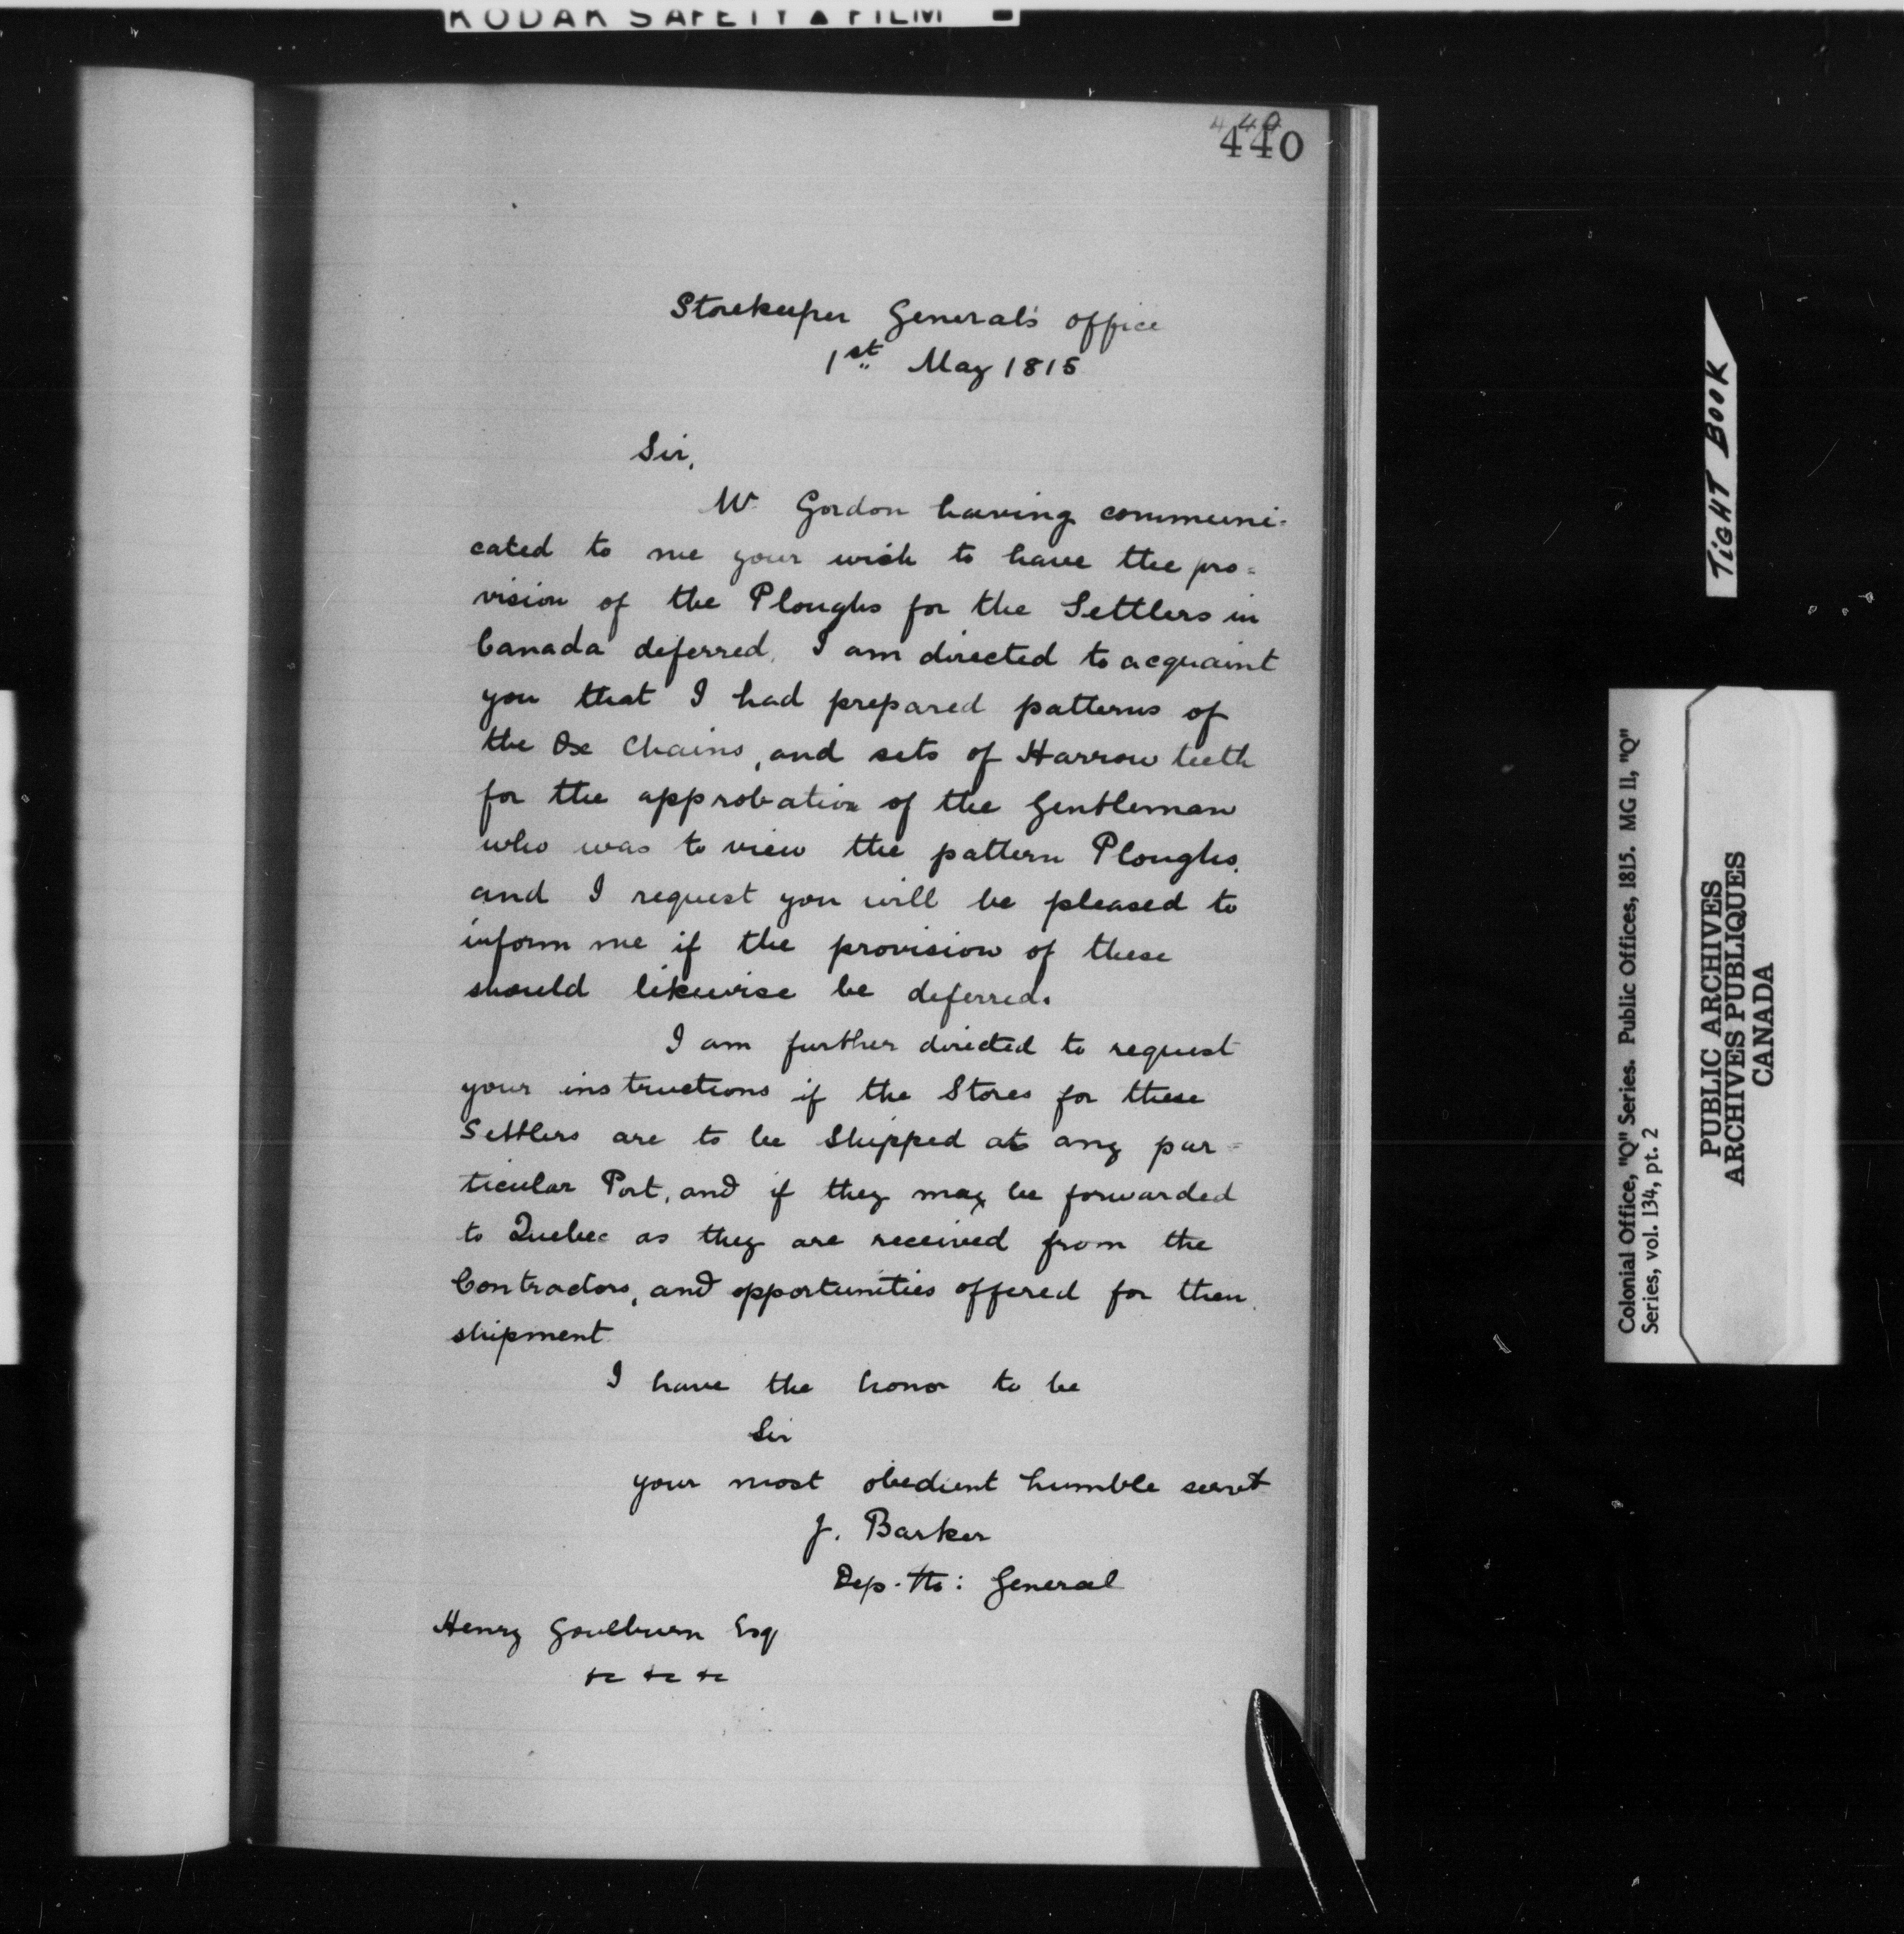 KODAK SAFETY ▲ FILM
440
440
Storekeeper General's office
1st May 1815
Sir,
Mr Gordon having communi-
cated to me your wish to have the pro=
vision of the Ploughs for the Settlers in
Canada deferred, I am directed to acquaint
you that I had prepared patterns of
the Ox Chains, and sets of Harrow teeth
for the approbation of the Gentleman
who was to view the pattern Ploughs,
and I request you will be pleased to
inform me if the provision of these
should likewise be deferred.
I am further directed to request
your instructions if the Stores for these
Settlers are to be Shipped at any par=
ticular Port, and if they may be forwarded
to Quebec as they are received from the
Contractors, and opportunities offered for their
shipment
I have the honor to be
Sir
your most obedient humble servt
J. Barker
Dep. General
Henry Goulburn Esq
&c &c &c
TIGHT BOOK
Colonial Office, "Q" Series. Public Offices, 1815. MG 11, "Q"
Series, vol. 134, pt. 2
PUBLIC ARCHIVES
ARCHIVES PUBLIQUES
CANADA